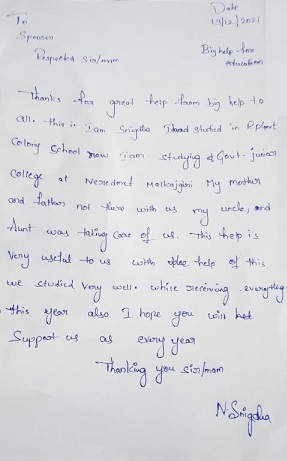 Date
To
13/12/2021
Sponser
Respected Sir/mam
Big help for
education
Thanks for great help from big help to
all. this is I am Snigdha I had studied in
Colony School now I am studying at Govt. junior
College at Neredmet Malkajgiri My mother
and father not there with us my uncle, and
Aunt was taking care of us. This help is
Very useful to us with help of this
we studied very well. while receiving everything
this year also I hope you will
Support us as every year
Thanking you sir/mam
N. Snigdha